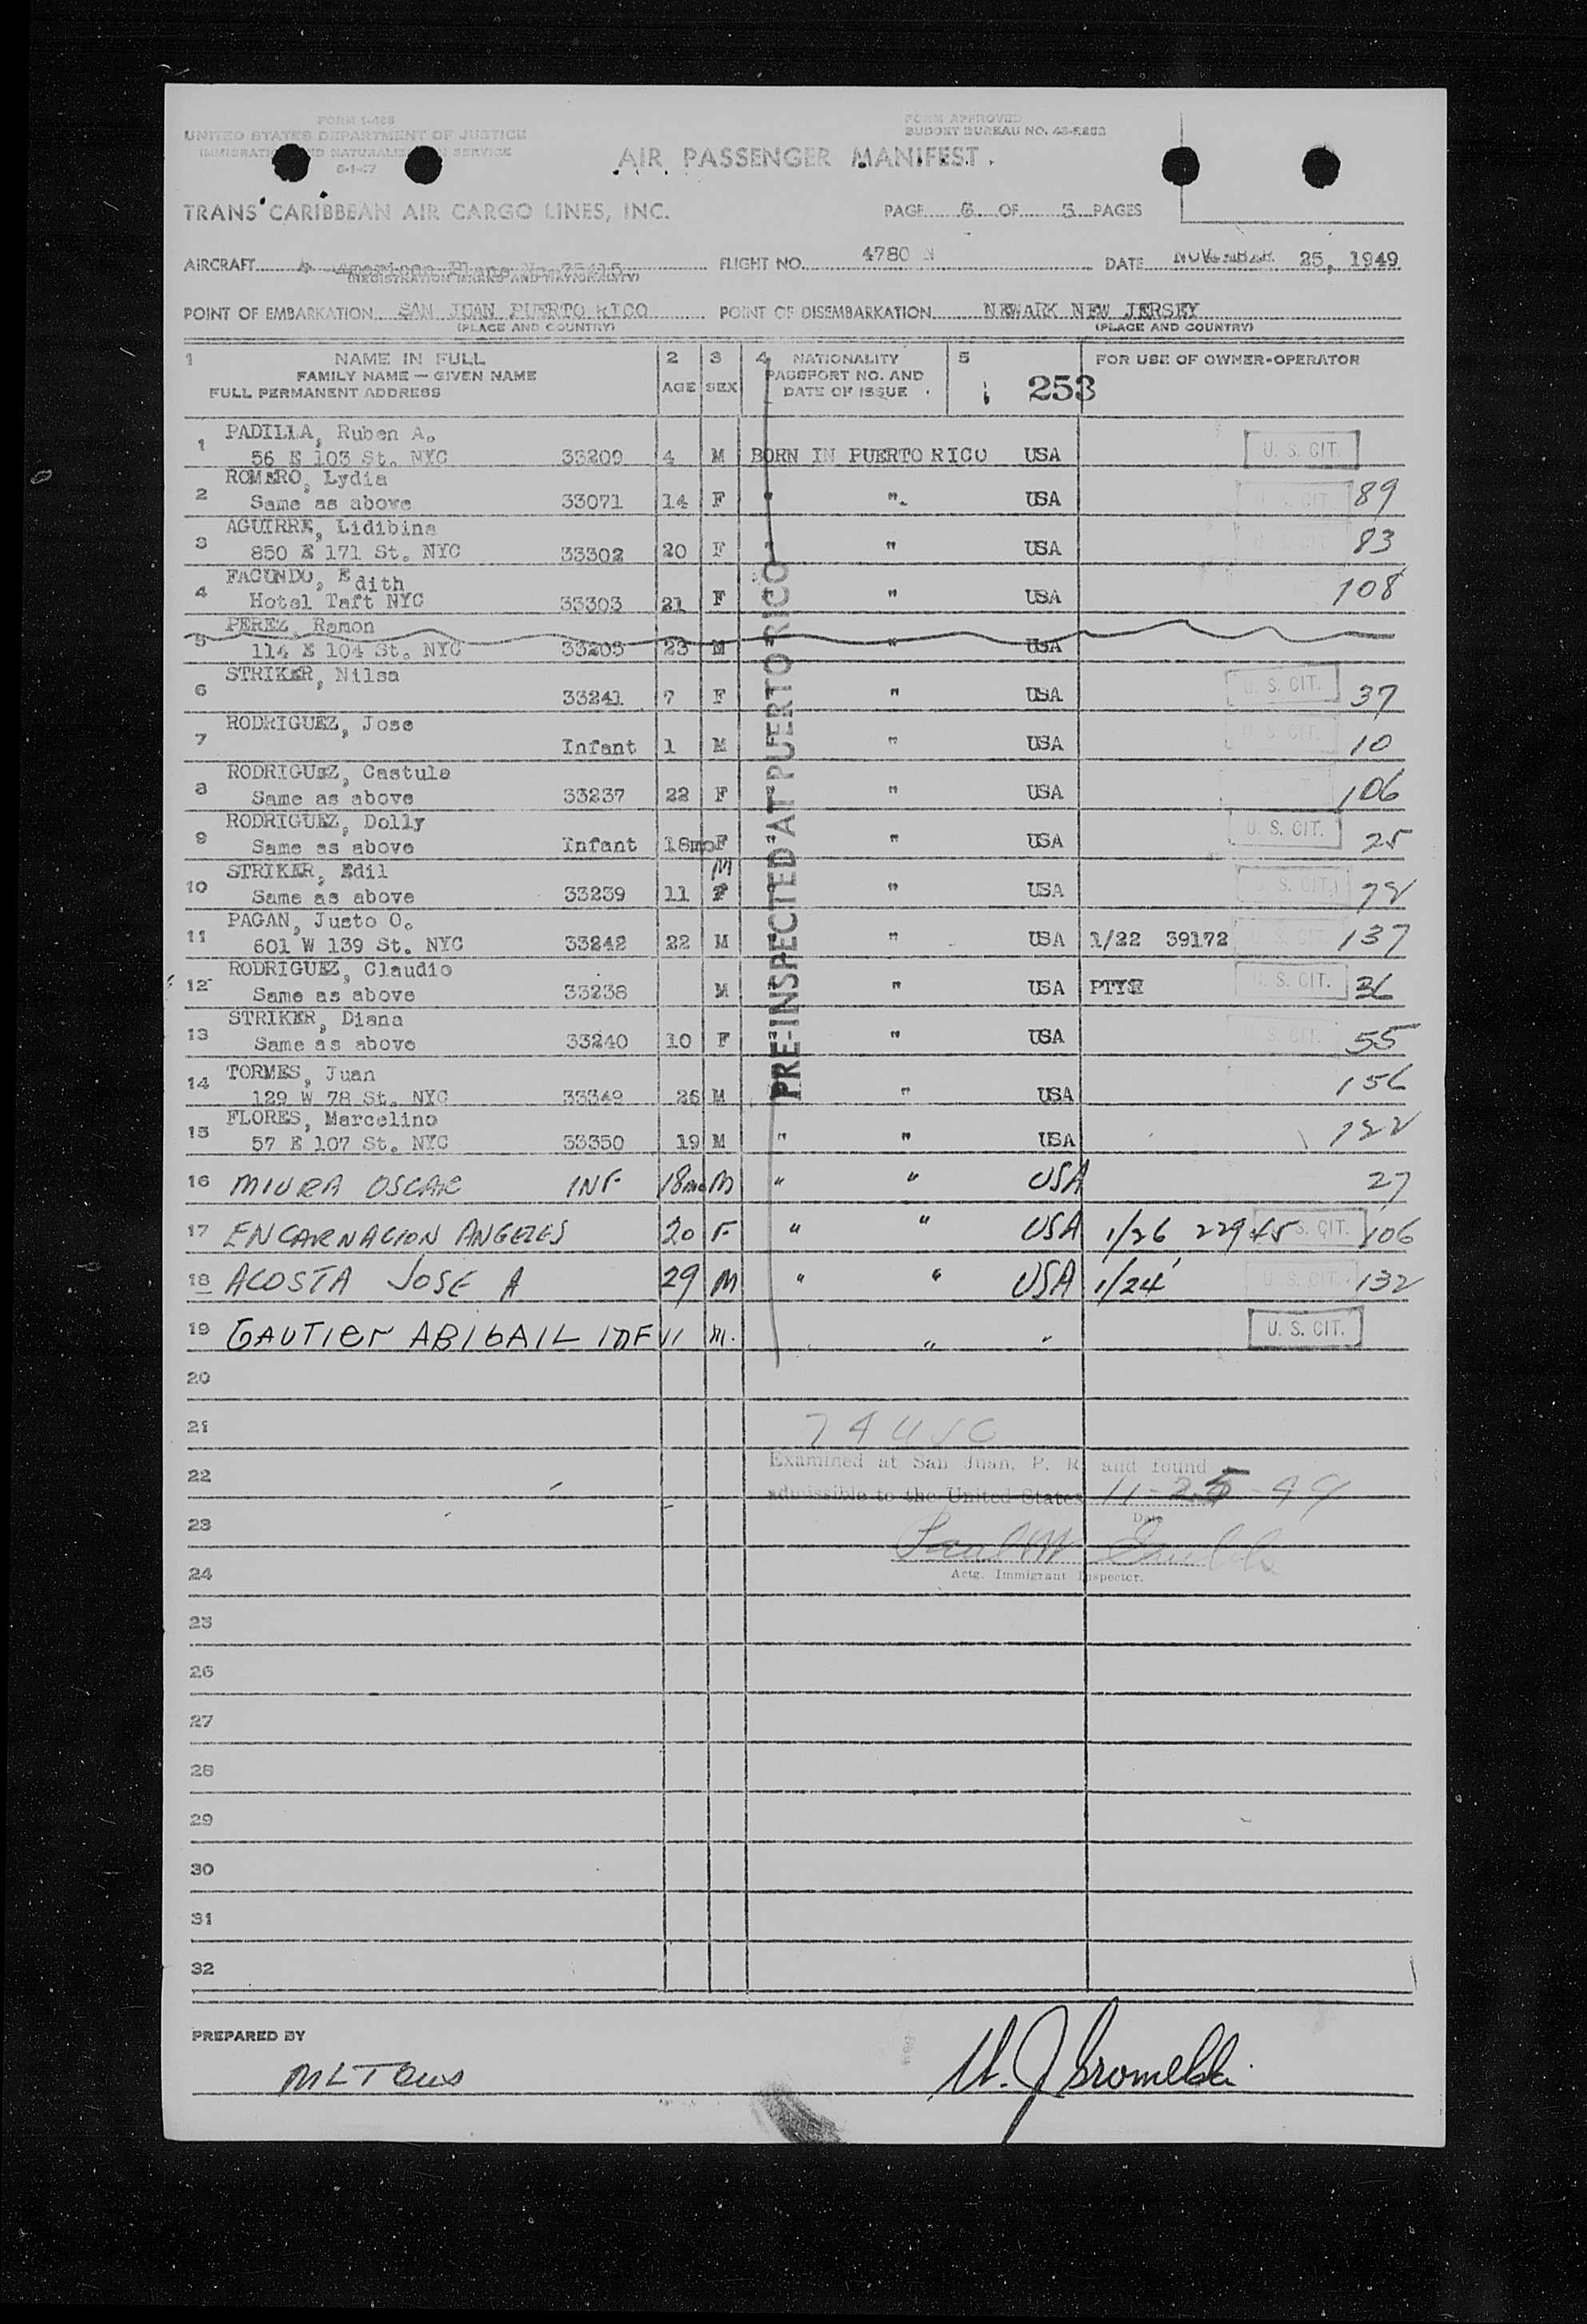 FORM I-466
UNITED STATES DEPARTMENT OF JUSTICE
IMMIGRATION AND NATURALIZATION SERVICE
6-1-47
FORM APPROVED
BUDGET BUREAU NO. 43-R252
AIR PASSENGER MANIFEST.
TRANS CARIBBEAN AIR CARGO LINES, INC.
PAGE 6 OF 5 PAGES
AIRCRAFT American Plane No.
(REGISTRATION MARKS AND NATIONALITY)
FLIGHT NO. 4780 N
DATE NOVEMBER 25, 1949
POINT OF EMBARKATION SAN JUAN PUERTO RICO
(PLACE AND COUNTRY)
POINT OF DISEMBARKATION NEWARK NEW JERSEY
(PLACE AND COUNTRY)
1 NAME IN FULL
FAMILY NAME — GIVEN NAME
FULL PERMANENT ADDRESS
2 AGE
3 SEX
4 NATIONALITY
PASSPORT NO. AND
DATE OF ISSUE
5
253
FOR USE OF OWNER-OPERATOR
PRE-INSPECTED AT PUERTO RICO
PADILLA, Ruben A.
1 56 E 103 St. NYC 33209 4 M BORN IN PUERTO RICO USA U. S. CIT.
ROMERO, Lydia
2 Same as above 33071 14 F " " USA U. S. CIT. 89
AGUIRRE, Lidibina
3 850 E 171 St. NYC 33302 20 F " " USA U. S. CIT. 83
FACUNDO, Edith
4 Hotel Taft NYC 33303 21 F " USA 108
PEREZ, Ramon
5 114 E 104 St. NYC 33205 23 M " USA
STRIKER, Nilsa
6 33241 7 F " USA U. S. CIT. 37
RODRIGUEZ, Jose
7 Infant 1 M " USA U. S. CIT. 10
RODRIGUEZ, Castula
8 Same as above 33237 22 F " USA 106
RODRIGUEZ, Dolly
9 Same as above Infant 18mo F " USA U. S. CIT. 25
STRIKER, Edil
10 Same as above 33239 11 M " USA U. S. CIT. 72
PAGAN, Justo O.
11 601 W 139 St. NYC 33242 22 M " USA 1/22 39172 U. S. CIT. 137
RODRIGUEZ, Claudio
12 Same as above 33238 M " USA PTYS U. S. CIT. 36
STRIKER, Diana
13 Same as above 33240 10 F " USA U. S. CIT. 55
TORMES, Juan
14 129 W 78 St. NYC 33349 26 M " USA 156
FLORES, Marcelino
15 57 E 107 St. NYC 33350 19 M " " USA 122
16 MIURA OSCAR INF 18mo M " " USA 27
17 ENCARNACION ANGELES 20 F " " USA 1/26 22945 U. S. CIT. 106
18 ACOSTA JOSE A 29 M " " USA 1/24 U. S. CIT. 132
19 GAUTIER ABIGAIL INF 11 M. " " U. S. CIT.
20
21 74 USC
22 Examined at San Juan, P. R. and found
admissible to the United States 11-25-49
23 Date
24 Actg. Immigrant Inspector.
25
26
27
28
29
30
31
32
PREPARED BY